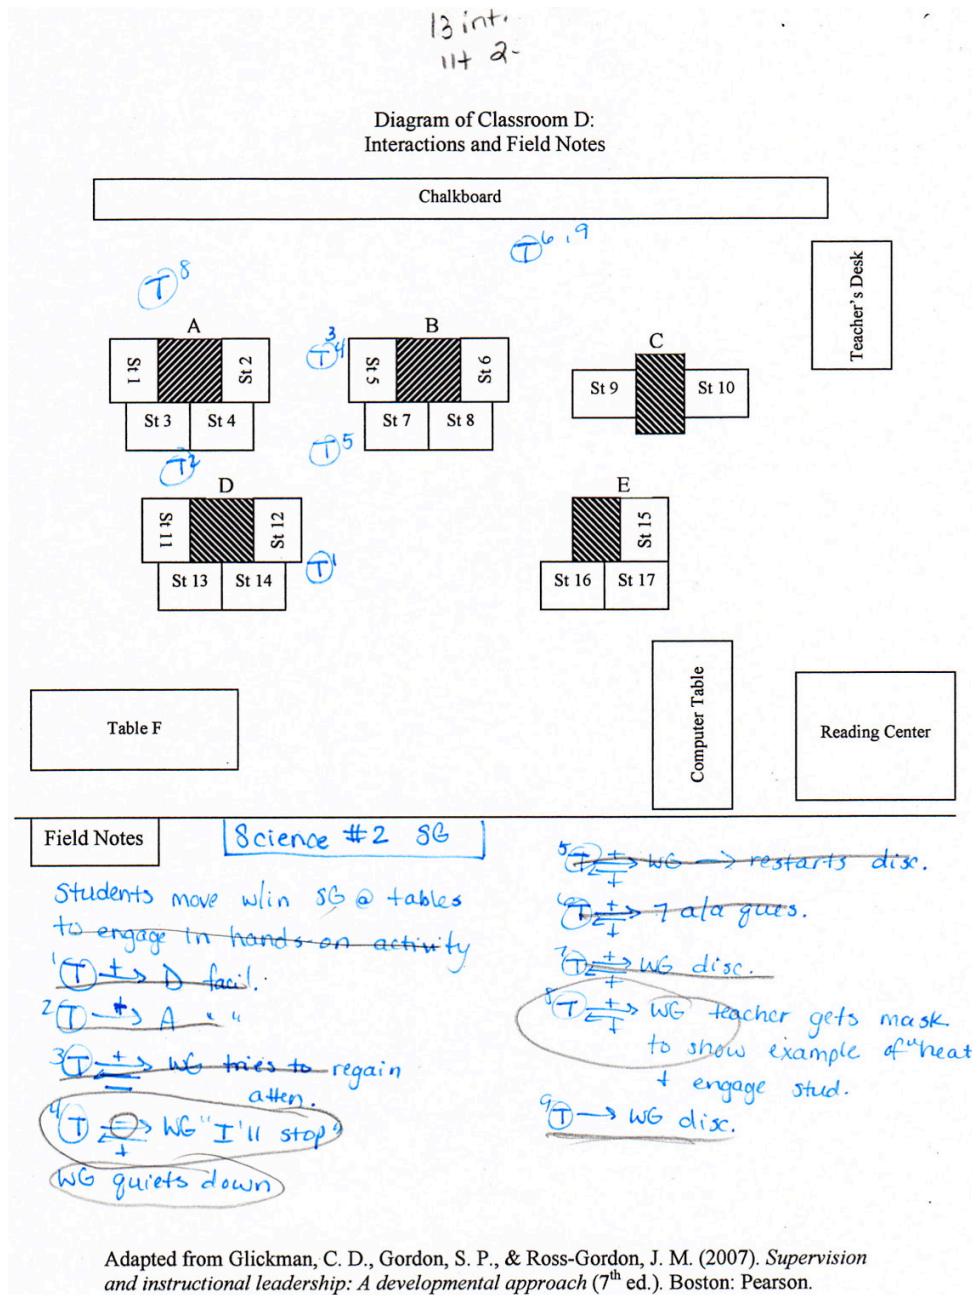 13 int.
11+ 2-
Diagram of Classroom D:
Interactions and Field Notes
Chalkboard
T 6, 9
T 8
Teacher's Desk
A
B
C
T 3 4
St 1
St 2
St 5
St 6
St 9
St 10
St 3
St 4
St 7
St 8
T 5
T 2
D
E
St 11
St 12
St 15
T 1
St 13
St 14
St 16
St 17
Table F
Computer Table
Reading Center
Field Notes
Science #2 SG
Students move w/in SG @ tables
to engage in hands-on activity
1 T + → D facil.
2 T + → A " "
3 T + → WG tries to regain
atten.
4 T - → WG "I'll stop"
+
WG quiets down
5 T + → WG → restarts disc.
+
6 T + → 7 a/a ques.
+
7 T + → WG disc.
+
8 T + → WG teacher gets mask
+
to show example of "heat
+ engage stud.
9 T → WG disc.
Adapted from Glickman, C. D., Gordon, S. P., & Ross-Gordon, J. M. (2007). Supervision
and instructional leadership: A developmental approach (7th ed.). Boston: Pearson.